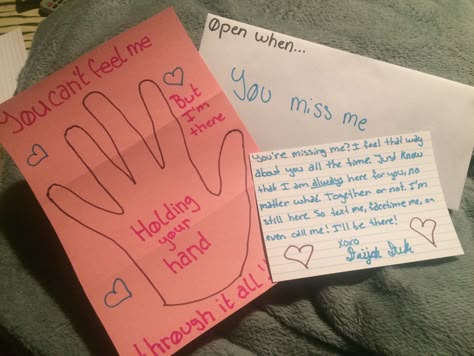 You can't feel me
But
I'm
there
Holding
your
hand
through it all!!
Open when...
You miss me
You're missing me? I feel that way
about you all the time. Just know
that I am always here for you, no
matter what. Together or not. I'm
still here. So text me, facetime me, or
even call me! I'll be there!
xoxo